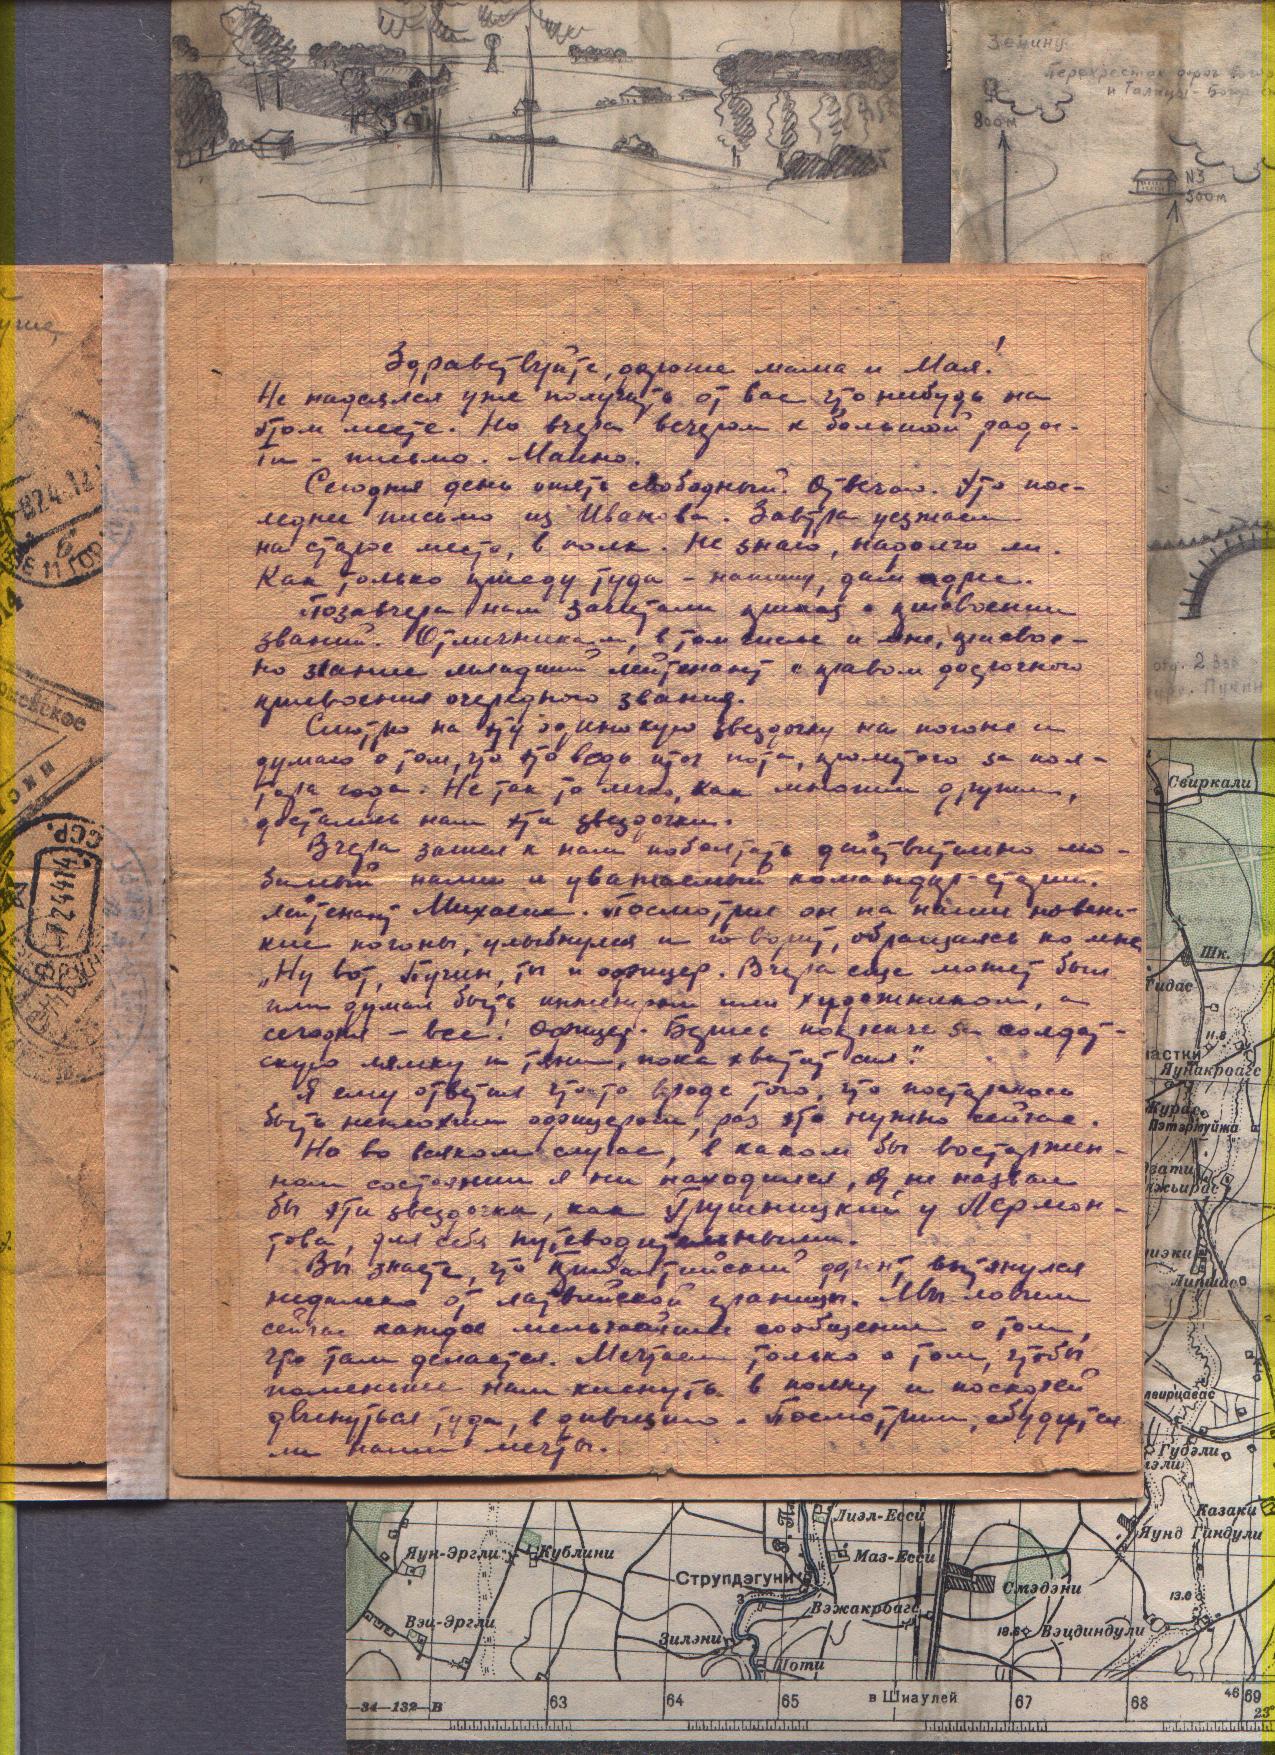 Зенину
Перекресток дорог
800м
N3
500м
Здравствуйте, дорогие мама и Мая!
Не надеялся уже получить от вас что нибудь на
этом месте. Но вчера вечером к большой радос-
ти - письмо. Маино.
Сегодня день опять свободный. Отвечаю. Это пос-
леднее письмо из Иванова. Завтра уезжаем
на старое место, в полк. Не знаю, надолго ли.
Как только приеду туда - напишу, дам адрес.
Позавчера нам зачитали приказ о присвоении
званий. Отличникам, в том числе и мне, присвое-
но звание младший лейтенант с правом досрочного
присвоения очередного звания.
Смотрю на эту одинокую звездочку на погоне и
думаю о том, что это ведь итог пота, пролитого за пол-
тора года. Не так то легко, как многим другим,
достались нам эти звездочки.
Вчера зашел к нам поболтать действительно лю-
бимый нами и уважаемый командир - старш.
лейтенант Михасик. Посмотрел он на наши новень-
кие погоны, улыбнулся и говорит, обращаясь ко мне
„Ну вот, Пучин, ты и офицер. Вчера еще может был
или думал быть инженером или художником, а
сегодня - все! Офицер. Берись покрепче за солдат-
скую лямку и тяни, пока хватит сил."
Я ему ответил что то вроде того, что постараюсь
быть неплохим офицером, раз это нужно сейчас.
Но во всяком случае, в каком бы восторжен-
ном состоянии я ни находился, я не назвал
бы эти звездочки, как Грушницкий у Лермон-
това, для себя путеводительными.
Вы знаете, что Прибалтийский фронт вытянулся
недалеко от латвийской границы. Мы ловим
сейчас каждое мельчайшее сообщение о том,
что там делается. Мечтаем только о том, чтобы
поменьше нам киснуть в полку и поскорей
двинуться туда, в дивизию. Посмотрим, сбудутся
ли наши мечты.
Свиркали
Шк.
11.8
Яунакроагс
Пэтэрмуйжа
Липшас
Губэли
Казаки
Яунд Гиндули
Лиэл-Есси
Маз-Есси
Яун-Эргли
Кублини
Струпдэгуни
Смэдэни
Вэжакроагс
13.0
Вэи-Эргли
Зилэни
18.8
Вэцдиндули
Шоти
34-132-В
63
64
65
в Шиаулей
67
68
4669
23°